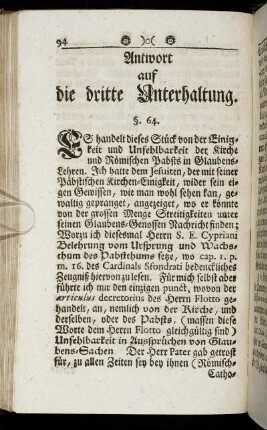 94
Antwort
auf
die dritte Unterhaltung.
§. 64.
ES handelt dieses Stück von der Einig-
keit und Unfehlbarkeit der Kirche
und Römischen Pabsts in Glaubens-
Lehren. Ich hatte dem Jesuiten, der mit seiner
Päbstischen Kirchen-Einigkeit, wider sein ei-
gen Gewissen, wie man wohl sehen kan, ge-
waltig gepranget, angezeiget, wo er könnte
von der grossen Menge Streitigkeiten unter
seinen Glaubens-Genossen Nachricht finden;
Worzu ich diesesmal Herrn S. E. Cypriani
Belehrung vom Ursprung und Wachs-
thum des Pabstthums setze, wo cap. 1. p.
m. 16. des Cardinals Sfondrati bedenckliches
Zeugniß hiervon zu lesen. Für mich selbst aber
führte ich nur den einzigen punct, wovon der
articulus decretorius des Herrn Flotto ge-
handelt, an, nemlich von der Kirche, und
derselben, oder des Pabsts, (massen diese
Worte dem Herrn Flotto gleichgültig sind)
Unfehlbarkeit in Aussprüchen von Glau-
bens-Sachen Der Herr Pater gab getrost
für, zu allen Zeiten sey bey ihnen (Römisch-
Catho-